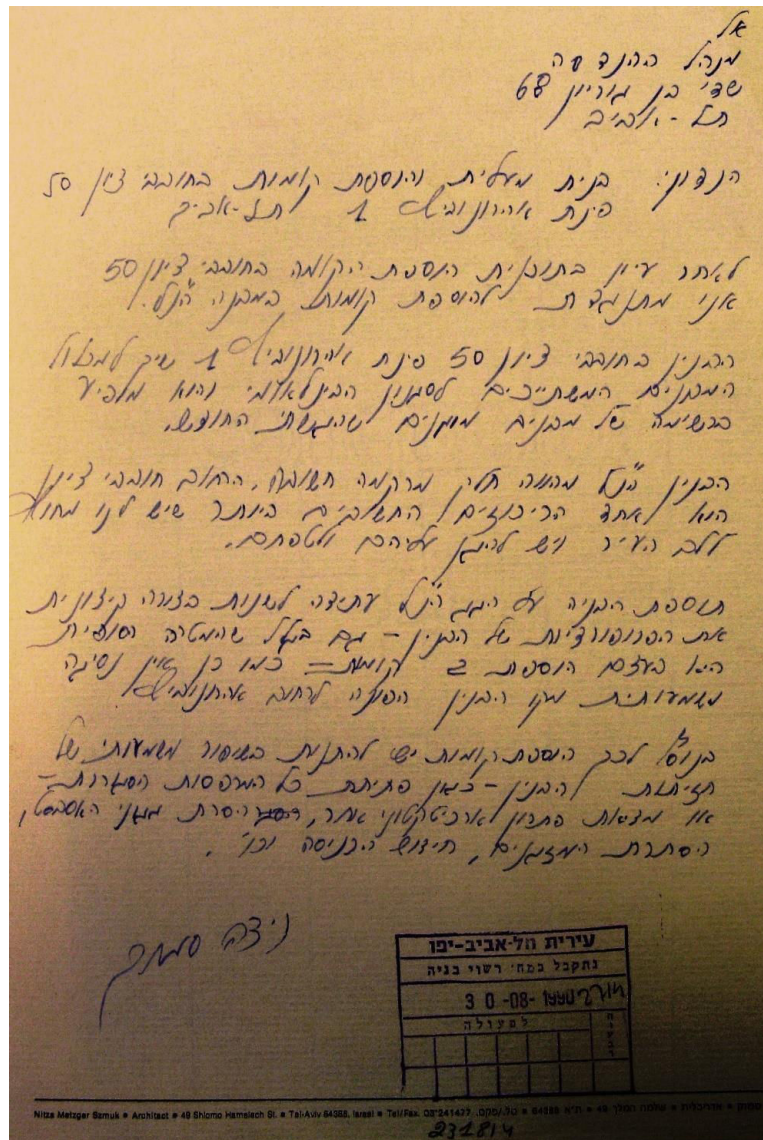 אל
מנהל ההנדסה
שד' בן גוריון 68
תל-אביב
הנדון: בנית מעלית והוספת קומות בחובבי ציון 50
פינת אהרונוביץ 1 תל-אביב
לאחר עיון בתוכנית הוספת הקומה בחובבי ציון 50
אני מתנגדת להוספת קומות במבנה הנ"ל.
הבנין בחובבי ציון 50 פינת אהרונוביץ 1 שיך למכלול
המבנים המשתייכים לסגנון הבינלאומי והוא מופיע
ברשימה של מבנים מוגנים שהוגשה החודש.
הבנין הנ"ל מהווה חלק מרקמה חשובה. הרחוב חובבי ציון
הוא אחד הריכוזים החשובים ביותר שיש לנו
ללב העיר ויש להגן עליהם ולטפחם.
תוספת הבניה על הגג הנ"ל עתידה לשנות בצורה קיצונית
את הפרופורציות של הבנין - גם בגלל שהמטרה הסופית
היא בעצם הוספת 2 קומות = כמו כן אין נסיגה
משמעותית מקו הבנין הפונה לרחוב אהרונוביץ
בנוסף לכך הוספת קומות יש להתנות בשיפור משמעותי של
חזיתות הבנין - כגון פתיחת כל המרפסות הסגורות -
או מציאת פתרון ארכיטקטוני אחר, הסרת גגוני האסבסט,
הסתרת המזגנים, חידוש הכניסה וכו'.
ניצה סמוק
עירית תל-אביב-יפו
נתקבל במח' רשוי בניה
30-08-1990
לפעולה
Nitza Metzger Szmuk • Architect • 49 Shlomo Hamelech St. • Tel-Aviv 64386, Israel • Tel/Fax. 03-241477
231814